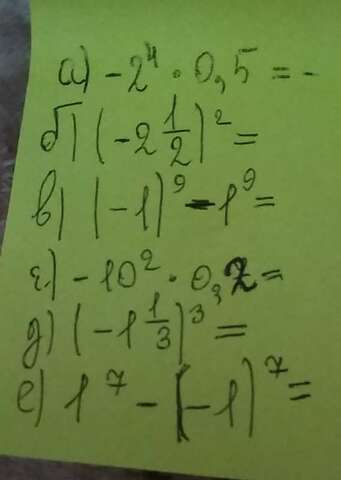 а) -2⁴ · 0,5 = -
б) (-2 1/2)² =
в) (-1)⁹ - 1⁹ =
г) -10² · 0,2 =
д) (-1 1/3)³ =
е) 1⁷ - (-1)⁷ =